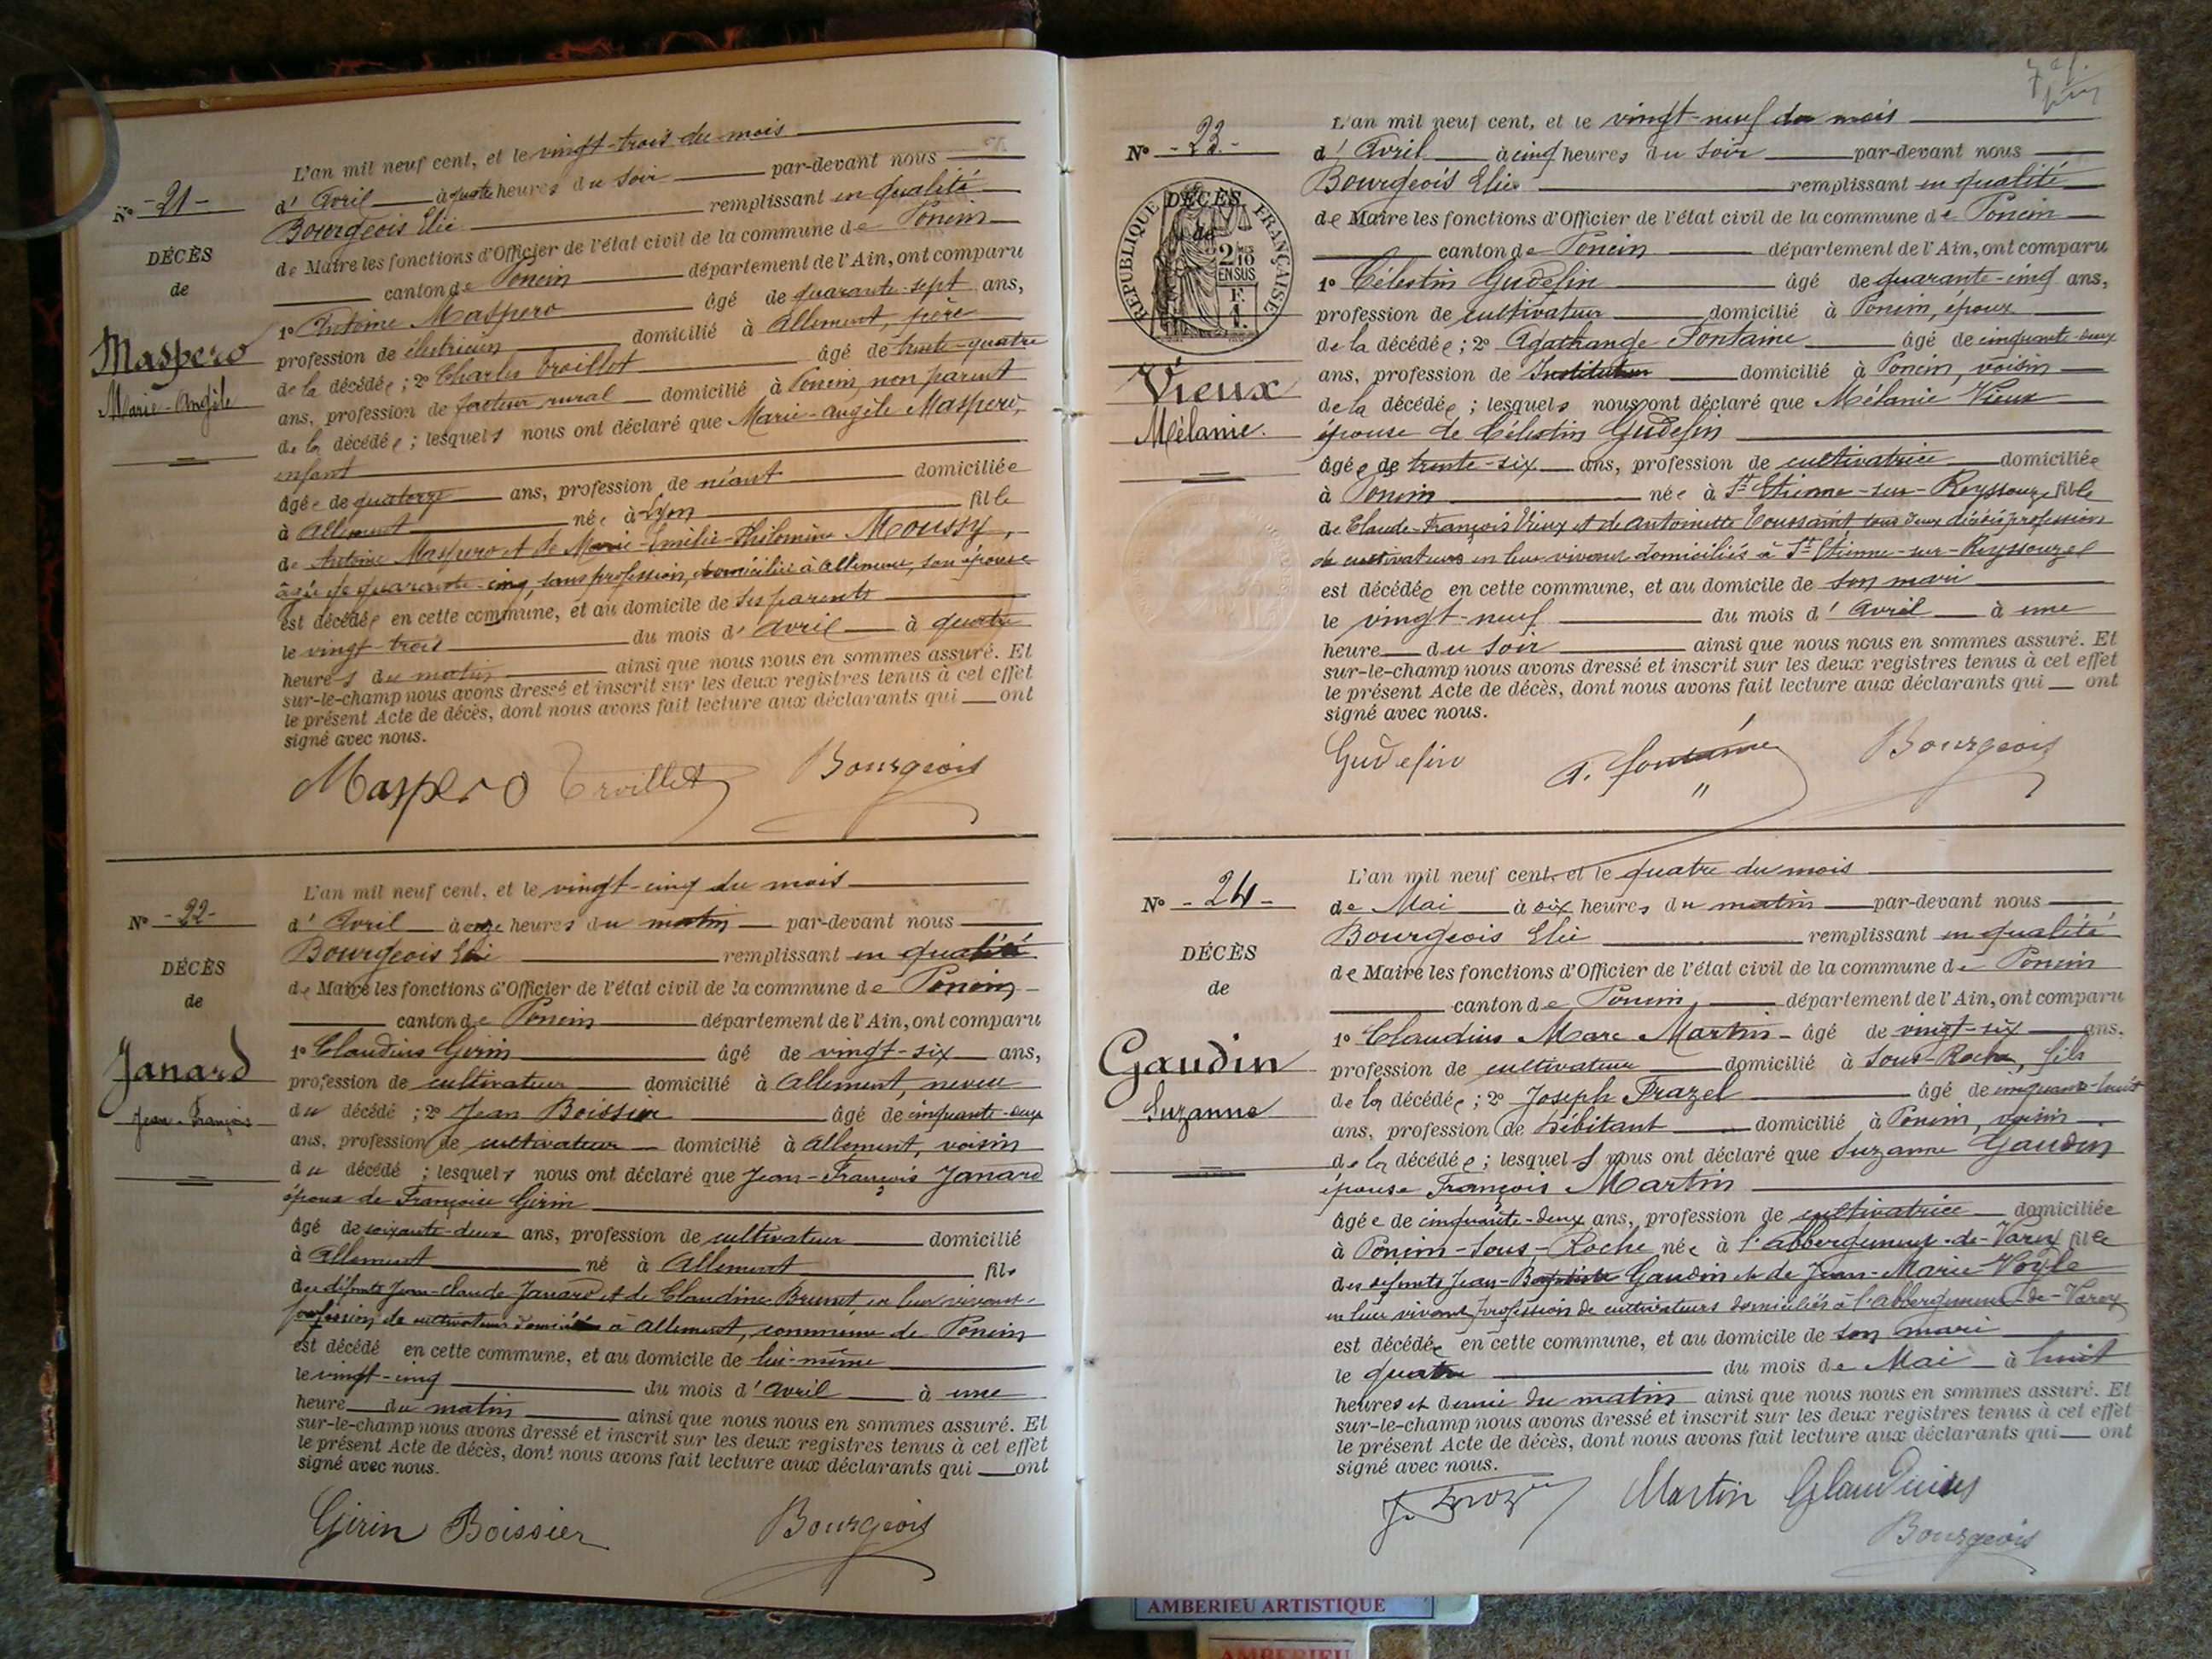 L'an mil neuf cent, et le vingt-trois du mois
d' Avril à quatre heures du soir par-devant nous
N° -21-
Bourgeois Elie remplissant en qualité
DÉCÈS
de Maire les fonctions d'Officier de l'état civil de la commune de Poncin
de
canton de Poncin département de l'Ain, ont comparu
1° Antoine Maspero âgé de quarante-sept ans,
Maspero
profession de électricien domicilié à Allement, père
de la décédée ; 2° Charles âgé de trente-quatre
Marie-Angèle
ans, profession de facteur rural domicilié à Poncin, non parent
de la décédée ; lesquels nous ont déclaré que Marie-Angèle Maspero,
enfant
âgée de quatorze ans, profession de néant domiciliée
à Allement née à Lyon fille
de Antoine Maspero et de Marie-Emilie-Philomène Moussy,
âgée de quarante-cinq, sans profession, domiciliée à Allement, son épouse
est décédée en cette commune, et au domicile de ses parents
le vingt-trois du mois d' Avril à quatre
heures du matin ainsi que nous nous en sommes assuré. Et
sur-le-champ nous avons dressé et inscrit sur les deux registres tenus à cet effet
le présent Acte de décès, dont nous avons fait lecture aux déclarants qui ont
signé avec nous.
Maspero Bourgeois
L'an mil neuf cent, et le vingt-cinq du mois
N° -22-
d' Avril à onze heures du matin par-devant nous
Bourgeois Elie remplissant en qualité
DÉCÈS
de Maire les fonctions d'Officier de l'état civil de la commune de Poncin
de
canton de Poncin département de l'Ain, ont comparu
1° Claudius Girin âgé de vingt-six ans,
Janard
profession de cultivateur domicilié à Allement, neveu
Jean-François
du décédé ; 2° Jean Boissier âgé de cinquante-deux
ans, profession de cultivateur domicilié à Allement, voisin
du décédé ; lesquels nous ont déclaré que Jean-François Janard
époux de Françoise Girin
âgé de soixante-deux ans, profession de cultivateur domicilié
à Allement né à Allement fils
des défunts Jean-Claude Janard et de Claudine Brunet, en leur vivant
profession de cultivateurs domiciliés à Allement, commune de Poncin
est décédé en cette commune, et au domicile de lui-même
le vingt-cinq du mois d' Avril à une
heure du matin ainsi que nous nous en sommes assuré. Et
sur-le-champ nous avons dressé et inscrit sur les deux registres tenus à cet effet
le présent Acte de décès, dont nous avons fait lecture aux déclarants qui ont
signé avec nous.
Girin Boissier Bourgeois
L'an mil neuf cent, et le vingt-neuf du mois
N° -23-
d' Avril à cinq heures du soir par-devant nous
Bourgeois Elie remplissant en qualité
DÉCÈS
de
RÉPUBLIQUE FRANÇAISE
2/10 EN SUS
de Maire les fonctions d'Officier de l'état civil de la commune de Poncin
canton de Poncin département de l'Ain, ont comparu
1° Célestin Gudefin âgé de quarante-cinq ans,
profession de cultivateur domicilié à Poncin, époux
de la décédée ; 2° Agathange Fontaine âgé de cinquante-deux
ans, profession de Instituteur domicilié à Poncin, voisin
Vieux
de la décédée ; lesquels nous ont déclaré que Mélanie Vieux
Mélanie.
épouse de Célestin Gudefin
âgée de trente-six ans, profession de cultivatrice domiciliée
à Poncin née à St Etienne-sur-Reyssouze fille
de Claude-François Vieux et de Antoinette Toussaint tous deux décédés profession
de cultivateurs en leur vivant domiciliés à St Etienne-sur-Reyssouze
est décédée en cette commune, et au domicile de son mari
le vingt-neuf du mois d' Avril à une
heure du soir ainsi que nous nous en sommes assuré. Et
sur-le-champ nous avons dressé et inscrit sur les deux registres tenus à cet effet
le présent Acte de décès, dont nous avons fait lecture aux déclarants qui ont
signé avec nous.
Gudefin A. Fontaine Bourgeois
L'an mil neuf cent, et le quatre du mois
N° -24-
de Mai à dix heures du matin par-devant nous
Bourgeois Elie remplissant en qualité
DÉCÈS
de Maire les fonctions d'Officier de l'état civil de la commune de Poncin
de
canton de Poncin, département de l'Ain, ont comparu
1° Claudius Marc Martin âgé de vingt-six ans,
Gaudin
profession de cultivateur domicilié à Sous-Roche, fils
Suzanne
de la décédée ; 2° Joseph Frazel âgé de cinquante-huit
ans, profession de Débitant domicilié à Poncin, voisin
de la décédée ; lesquels nous ont déclaré que Suzanne Gaudin
épouse François Martin
âgée de cinquante-deux ans, profession de cultivatrice domiciliée
à Poncin-Sous-Roche née à l'Abbergement-de-Varey fille
des défunts Jean-Baptiste Gaudin et de Jeanne-Marie
en leur vivant profession de cultivateurs domiciliés à l'Abbergement-de-Varey
est décédée en cette commune, et au domicile de son mari
le quatre du mois de Mai à huit
heures et demie du matin ainsi que nous nous en sommes assuré. Et
sur-le-champ nous avons dressé et inscrit sur les deux registres tenus à cet effet
le présent Acte de décès, dont nous avons fait lecture aux déclarants qui ont
signé avec nous.
Martin Claudius
Bourgeois
AMBERIEU ARTISTIQUE
AMBERIEU